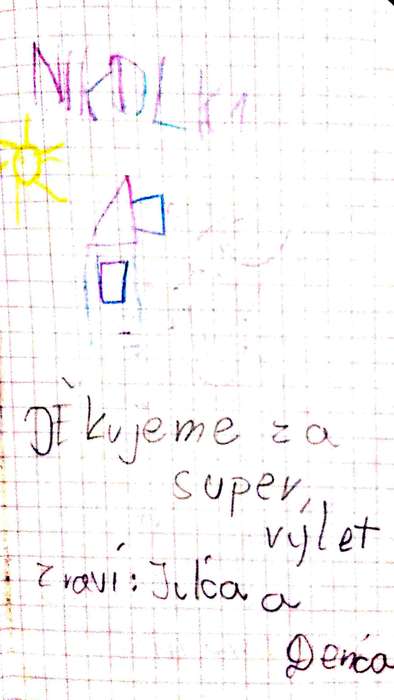 NIKOLKA
Děkujeme za
super,
výlet
Zraví: Julča a
Denča